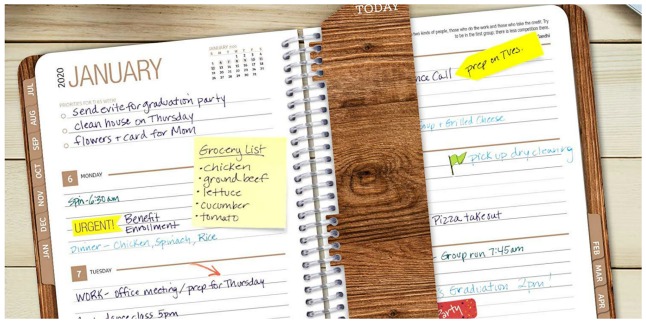 TODAY
2020
JANUARY
JANUARY 2020
PRIORITIES FOR THE WEEK
send evite for graduation party
clean house on Thursday
flowers + card for Mom
Grocery List
• chicken
• ground beef
• lettuce
• cucumber
• tomato
6 MONDAY
5pm-6:30am
URGENT! Benefit
Enrollment
Dinner - Chicken, Spinach, Rice
7 TUESDAY
WORK - office meeting / prep for Thursday
dance class 5pm
JUL
AUG
SEP
OCT
NOV
DEC
JAN
kinds of people, those who do the work and those who take the credit. Try
to be in the first group: there is less competition there.
Gandhi
Call
prep on TUES.
+ Grilled Cheese
pick up dry cleaning
Pizza takeout
Group run 7:45am
Graduation 2pm!
arty
FEB
MAR
APR